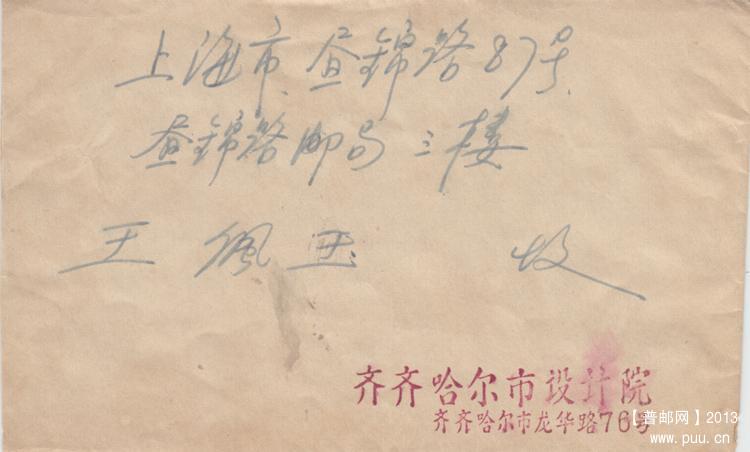 上海市、昼锦路87号
昼锦路邮局三楼
王佩玉 收
齐齐哈尔市设计院
齐齐哈尔市龙华路76号
【普邮网】2013
www.puu.cn